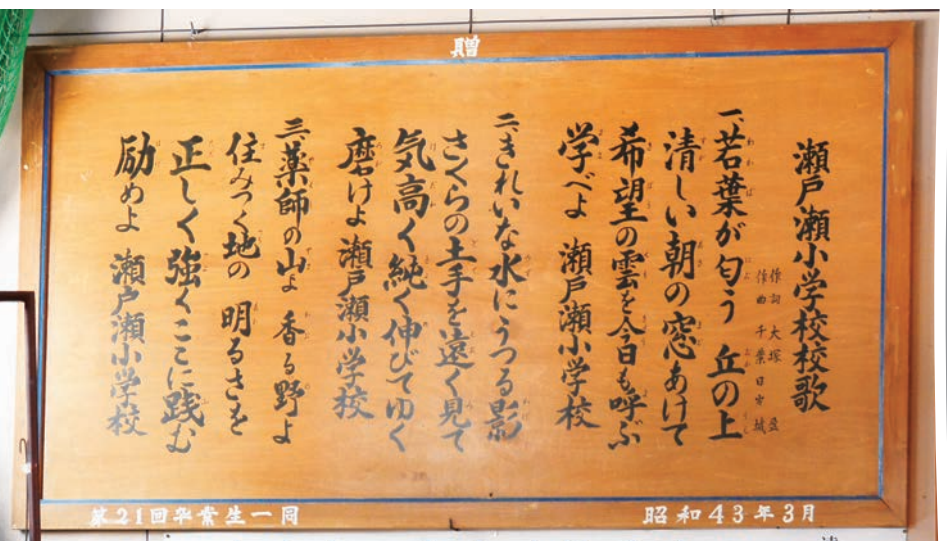 贈
瀬戸瀬小学校校歌
作詞 大塚 盈
作曲 千葉日出城
一、若葉が匂う 丘の上
清しい朝の窓あけて
希望の雲を今日も呼ぶ
学べよ 瀬戸瀬小学校
二、きれいな水にうつる影
さくらの土手を遠く見て
気高く純く伸びてゆく
磨けよ 瀬戸瀬小学校
三、薬師の山よ 香る野よ
住みつく地の 明るさを
正しく強くここに践む
励めよ 瀬戸瀬小学校
昭和43年3月
第21回卒業生一同